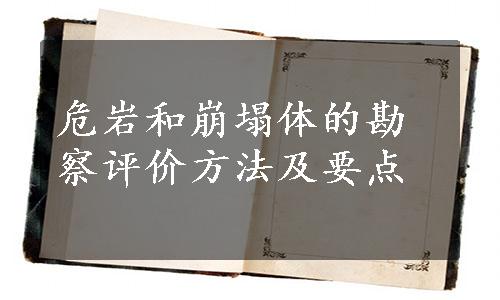 危岩和崩塌体的勘
察评价方法及要点